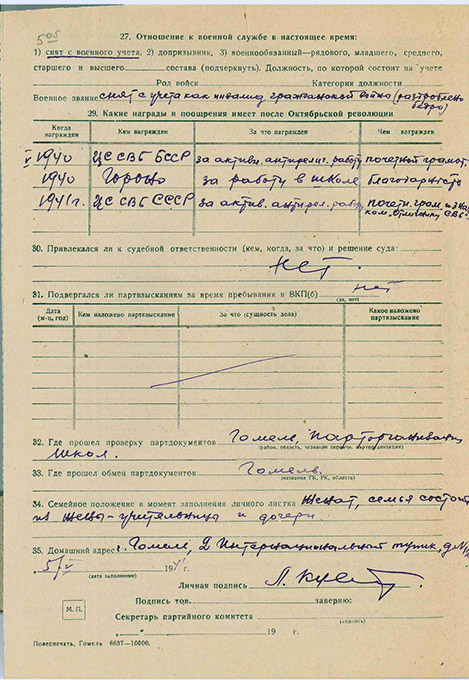 505
27. Отношение к военной службе в настоящее время:
1) снят с военного учета, 2) допризывник, 3) военнообязанный—рядового, младшего, среднего,
старшего и высшего состава (подчеркнуть). Должность, по которой состоит на учете
Род войск Категория должности
Военное звание снят с учета как инвалид гражданской войны (раздроблено
бедро)
29. Какие награды и поощрения имеет после Октябрьской революции
Когда награжден Кем награжден За что награжден Чем награжден
1940 ЦС СВБ БССР за активн. антирелиг. работу почетной грамот.
1940 Гороно за работу в школе благодарность
1941 г. ЦС СВБ СССР за актив. антирел. работу почетн. грам. и знач
ком „Отличник СВБ“
30. Привлекался ли к судебной ответственности (кем, когда, за что) и решение суда:
нет.
31. Подвергался ли партвзысканиям за время пребывания в ВКП(б) нет
(да, нет)
Дата (м-ц, год) Кем наложено партвзыскание За что (сущность дела) Какое наложено партвзыскание
32. Где прошел проверку партдокументов Гомель, парторганизации
(район, область, название первичн. парторганизации)
школ.
33. Где прошел обмен партдокументов Гомель.
(название ГК, РК, область)
34. Семейное положение в момент заполнения личного листка женат, семья состоит
из жены-учительницы и дочери.
35. Домашний адрес г. Гомель, 2 Интернациональный тупик, д. №
5/V 1941 г.
(дата заполнения)
Личная подпись
Подпись тов. заверяю:
М.П.
Секретарь партийного комитета
(подпись)
19 г.
Полеспечать, Гомель 6637—10000.